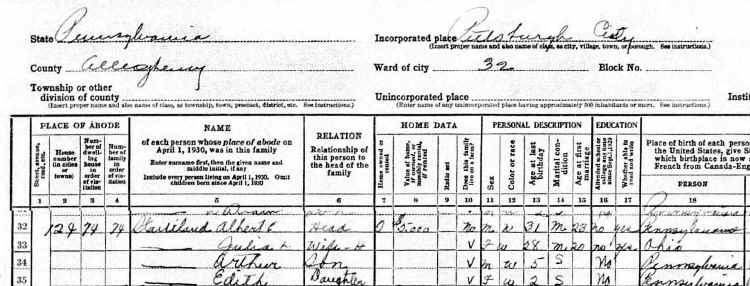 State Pennsylvania Incorporated place Pittsburgh City
(Insert proper name and also name of class, as city, village, town, or borough. See instructions.)
County Allegheny Ward of city 32 Block No.
Township or other
division of county
(Insert proper name and also name of class, as township, town, precinct, district, etc. See instructions.)
Unincorporated place
(Enter name of any unincorporated place having approximately 500 inhabitants or more. See instructions.)
PLACE OF ABODE NAME RELATION HOME DATA PERSONAL DESCRIPTION EDUCATION
Street, avenue, road, etc.
House number (in cities or towns)
Number of dwelling house in order of visitation
Number of family in order of visitation
of each person whose place of abode on
April 1, 1930, was in this family
Enter surname first, then the given name and
middle initial, if any
Include every person living on April 1, 1930. Omit
children born since April 1, 1930
Relationship of this person to the head of the family
Home owned or rented
Value of home, if owned, or monthly rental, if rented
Radio set
Does this family live on a farm?
Sex
Color or race
Age at last birthday
Marital condition
Age at first marriage
Attended school or college any time since Sept. 1, 1929
Whether able to read and write
Place of birth of each person
the United States, give S
which birthplace is now
French from Canada-Eng
PERSON
1 2 3 4 5 6 7 8 9 10 11 12 13 14 15 16 17 18
32 124 74 74 Albert Head O $5,000 No M W 31 M 23 no yes Pennsylvania
33 Wife-H V F W 28 M 20 no yes Ohio
34 Arthur Son V M W 5 S No Pennsylvania
35 Edith Daughter V F W 2 S No